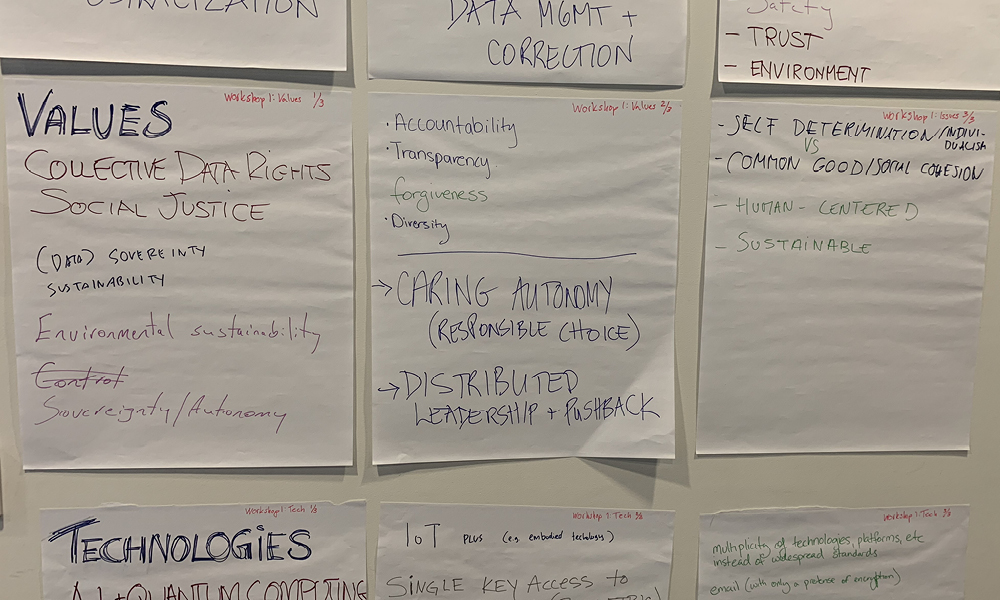 DATA MGMT +
CORRECTION
Safety
- TRUST
- ENVIRONMENT
Workshop 1: Values 1/3
VALUES
COLLECTIVE DATA RIGHTS
SOCIAL JUSTICE
(DATA) SOVEREINTY
SUSTAINABILITY
Environmental sustainability
Control
Sovereignty/Autonomy
Workshop 1: Values 2/3
· Accountability
· Transparency
forgiveness
· Diversity
→ CARING AUTONOMY
(RESPONSIBLE CHOICE)
→ DISTRIBUTED
LEADERSHIP + PUSHBACK
Workshop 1: issues 3/3
- SELF DETERMINATION/INDIVI-
DUALISM
VS
- COMMON GOOD/SOCIAL COHESION
- HUMAN-CENTERED
- SUSTAINABLE
Workshop 1 Tech 1/3
TECHNOLOGIES
A.I + QUANTUM COMPUTING
Workshop 1: Tech
IoT PLUS (e.g. embodied technology)
SINGLE KEY ACCESS to
Workshop 1: Tech
multiplicity of technologies, platforms, etc
instead of widespread standards
email (with only a pretense of encryption)